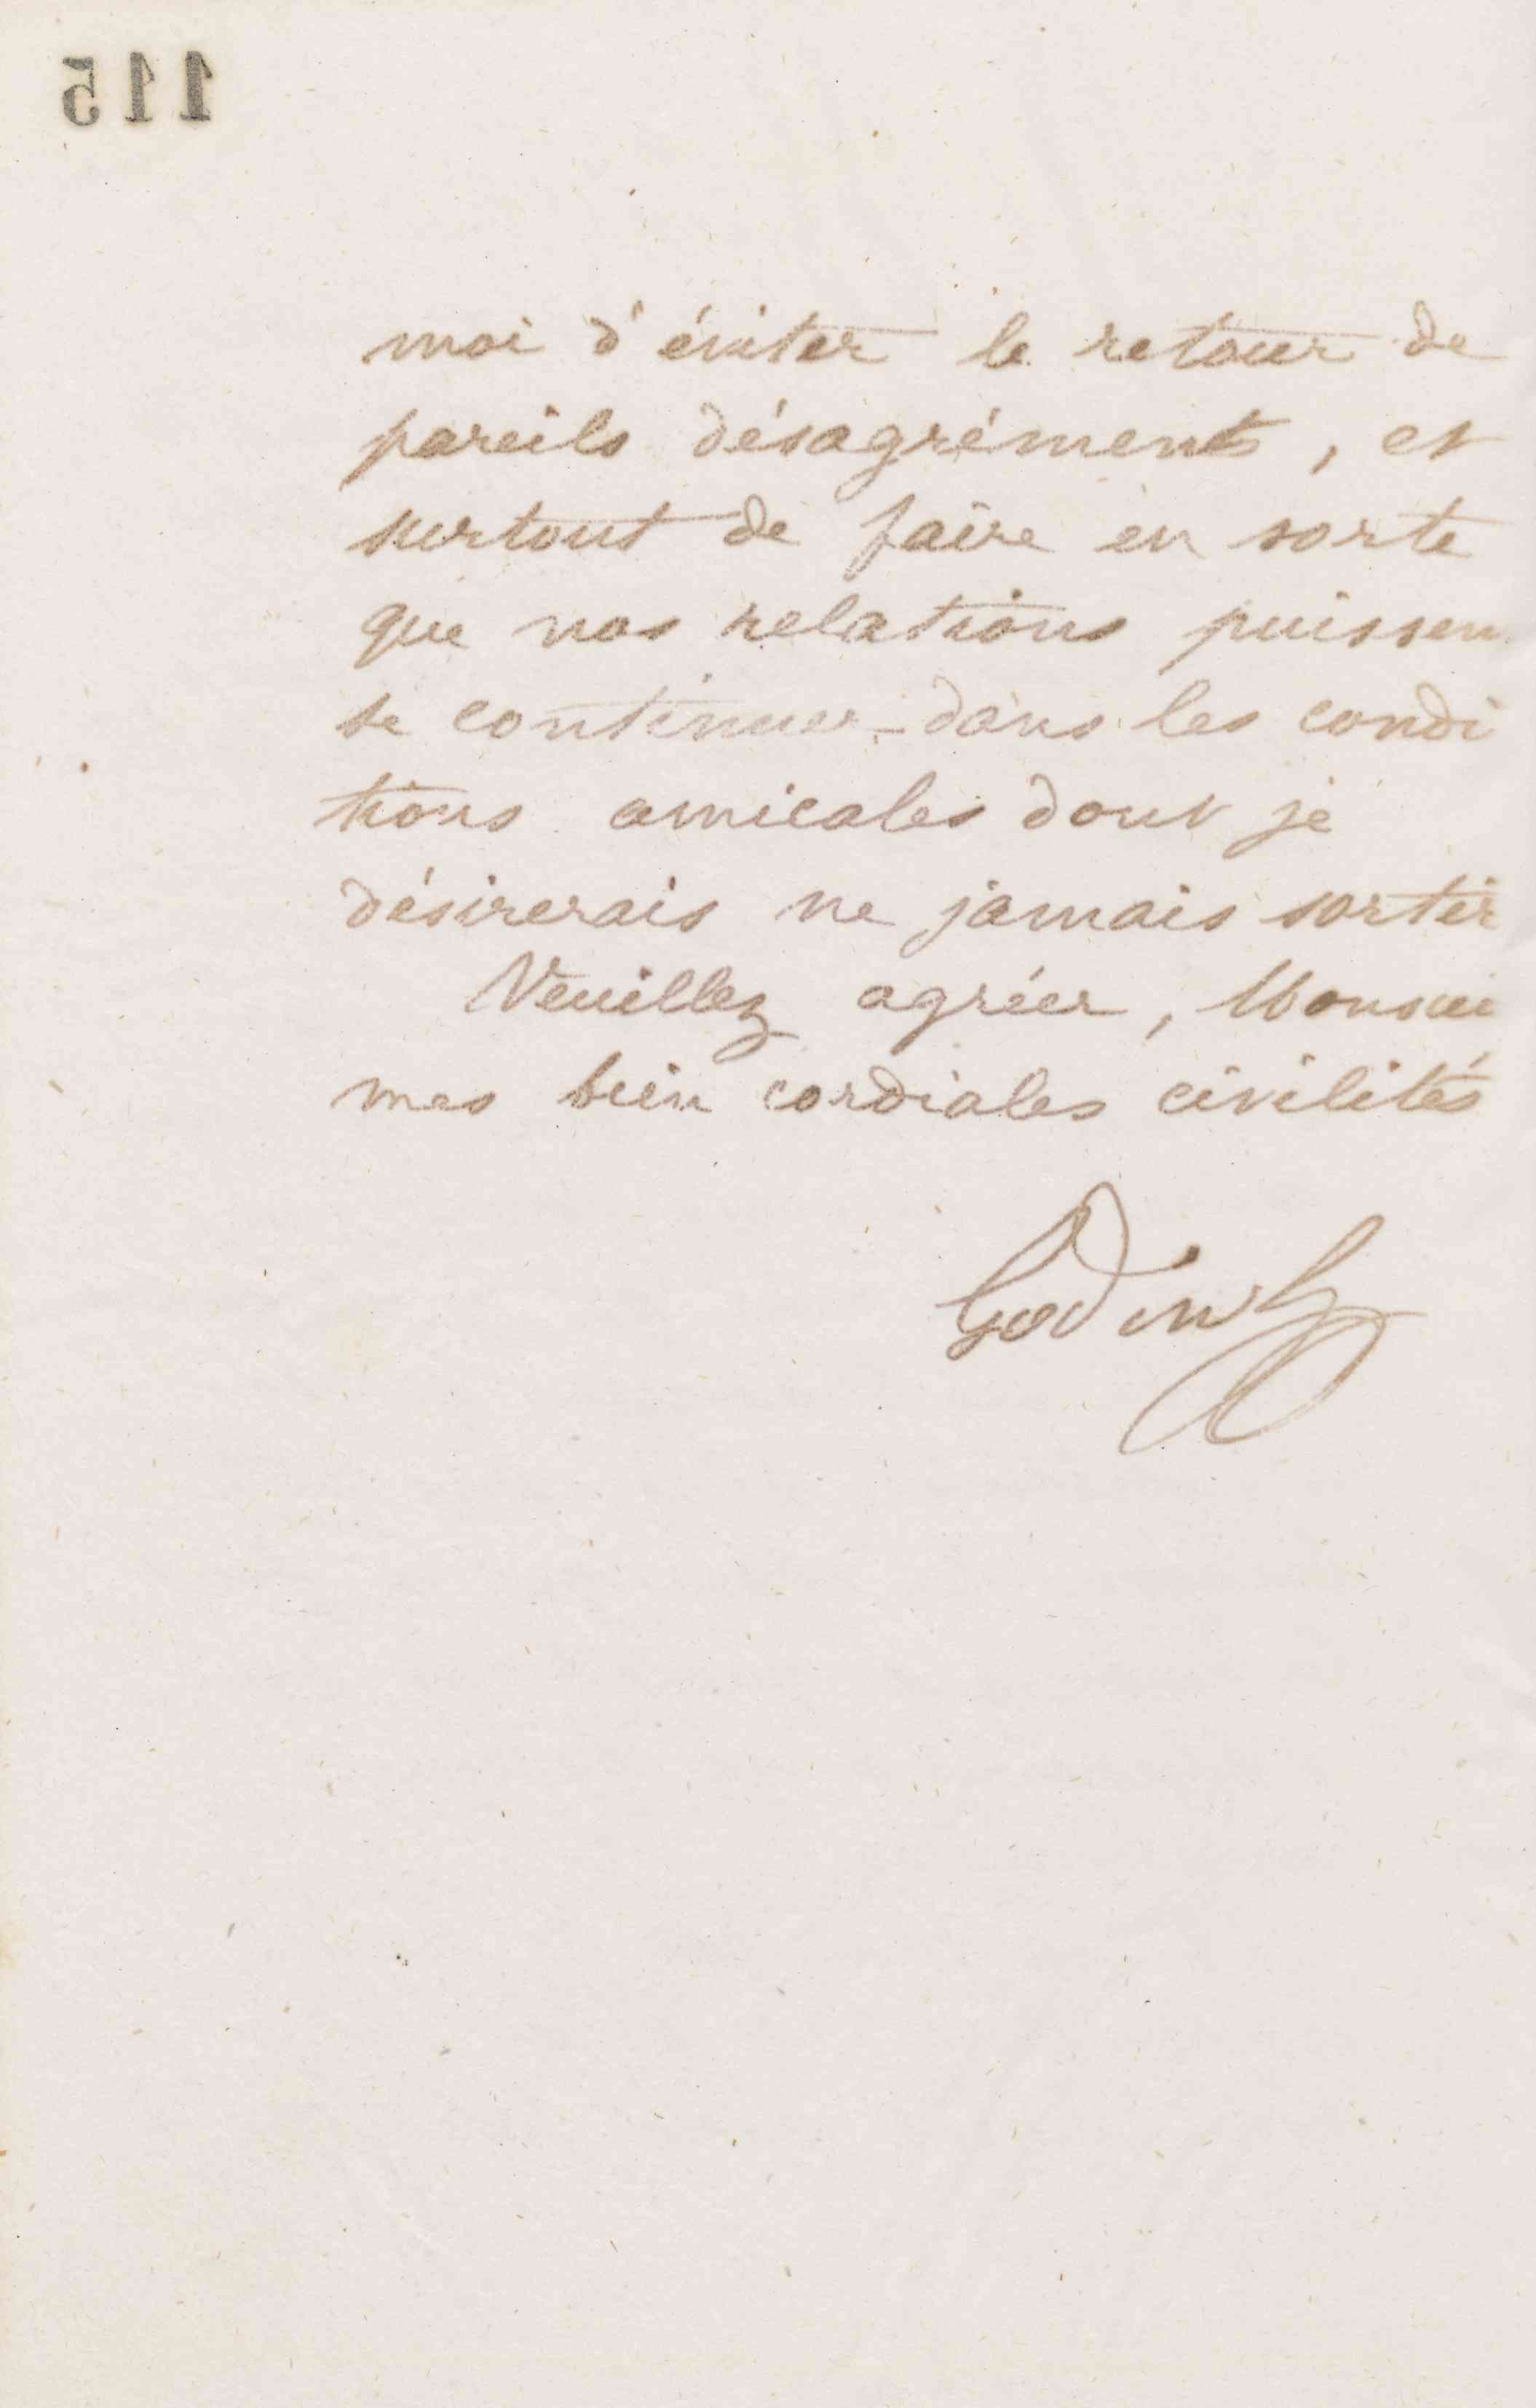 115
moi d'éviter le retour de
pareils désagréments, et
surtout de faire en sorte
que nos relations puissen
se continuer dans les condi
tions amicales dont je
désirerais ne jamais sortir
Veuillez agréer, Monsieu
mes bien cordiales civilités
Godin